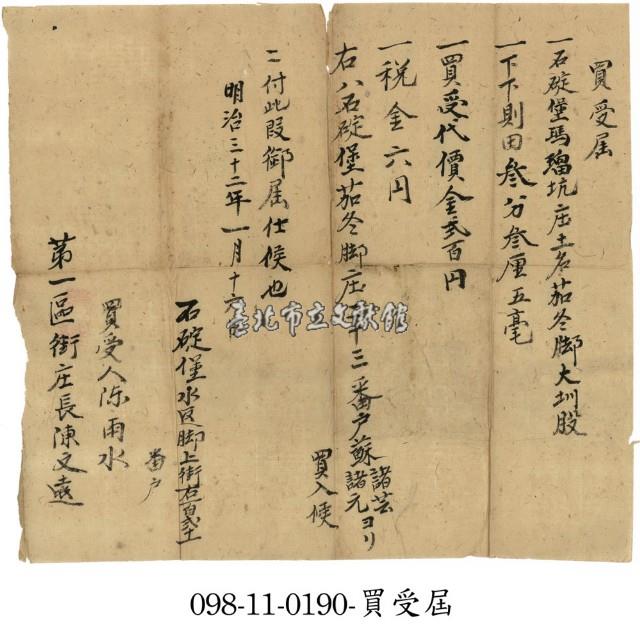 買受届
一石碇堡瑪瑠坑庄土名茄苳脚大圳股
一下下則田叁分叁厘五毫
一買受代價金弍百円
一税金六円
右ハ石碇堡茄苳脚庄 十三番戸蘇 諸芸 諸元ヨリ
買入候
ニ付此段御届仕候也
明治三十二年一月十六
石碇堡水返脚上街右百弍十
番戸
買受人陈雨水
第一區街庄長陳文遠
臺北市立文獻館
098-11-0190-買受屆